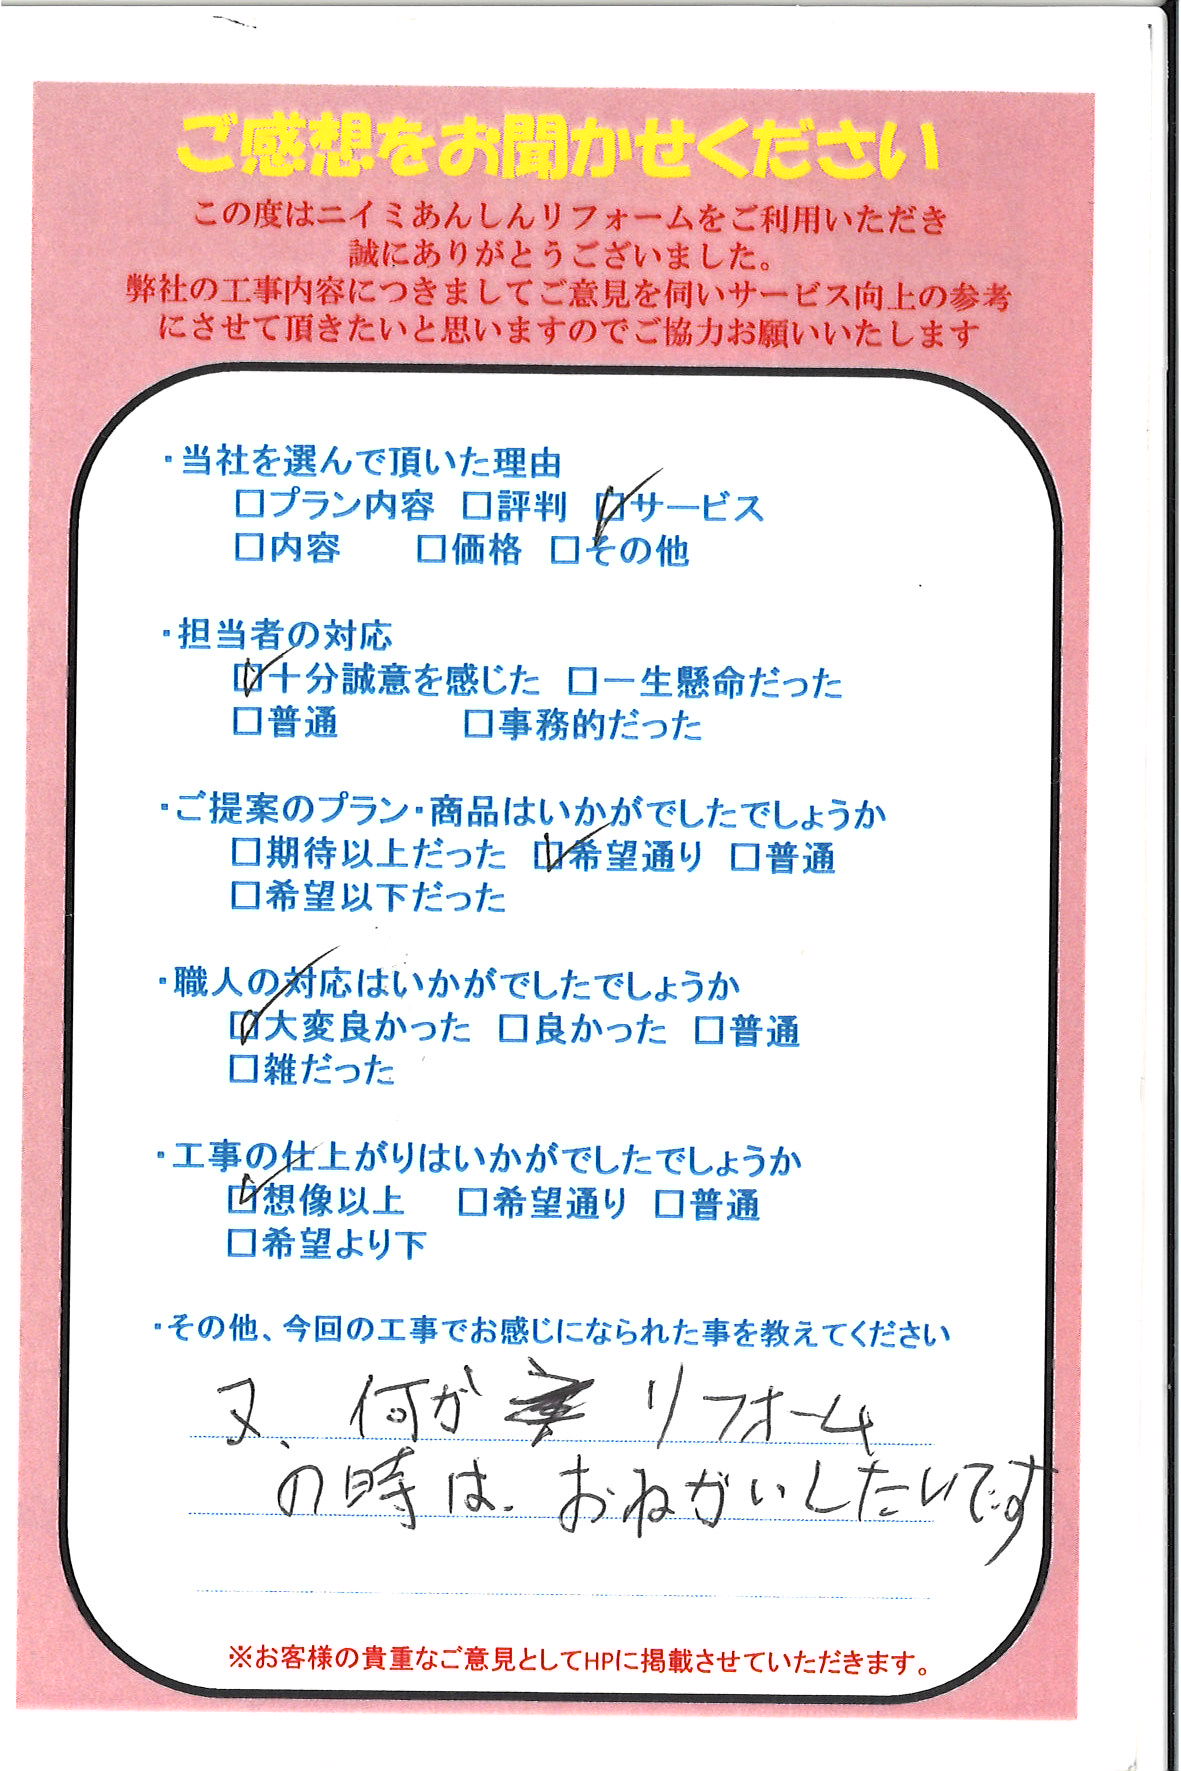 ご感想をお聞かせください
この度はニイミあんしんリフォームをご利用いただき
誠にありがとうございました。
弊社の工事内容につきましてご意見を伺いサービス向上の参考
にさせて頂きたいと思いますのでご協力お願いいたします
・当社を選んで頂いた理由
□プラン内容 □評判 ☑サービス
□内容 □価格 □その他
・担当者の対応
☑十分誠意を感じた □一生懸命だった
□普通 □事務的だった
・ご提案のプラン・商品はいかがでしたでしょうか
□期待以上だった ☑希望通り □普通
□希望以下だった
・職人の対応はいかがでしたでしょうか
☑大変良かった □良かった □普通
□雑だった
・工事の仕上がりはいかがでしたでしょうか
☑想像以上 □希望通り □普通
□希望より下
・その他、今回の工事でお感じになられた事を教えてください
又、何か リフォーム
の時は、おねがいしたいです
※お客様の貴重なご意見としてHPに掲載させていただきます。